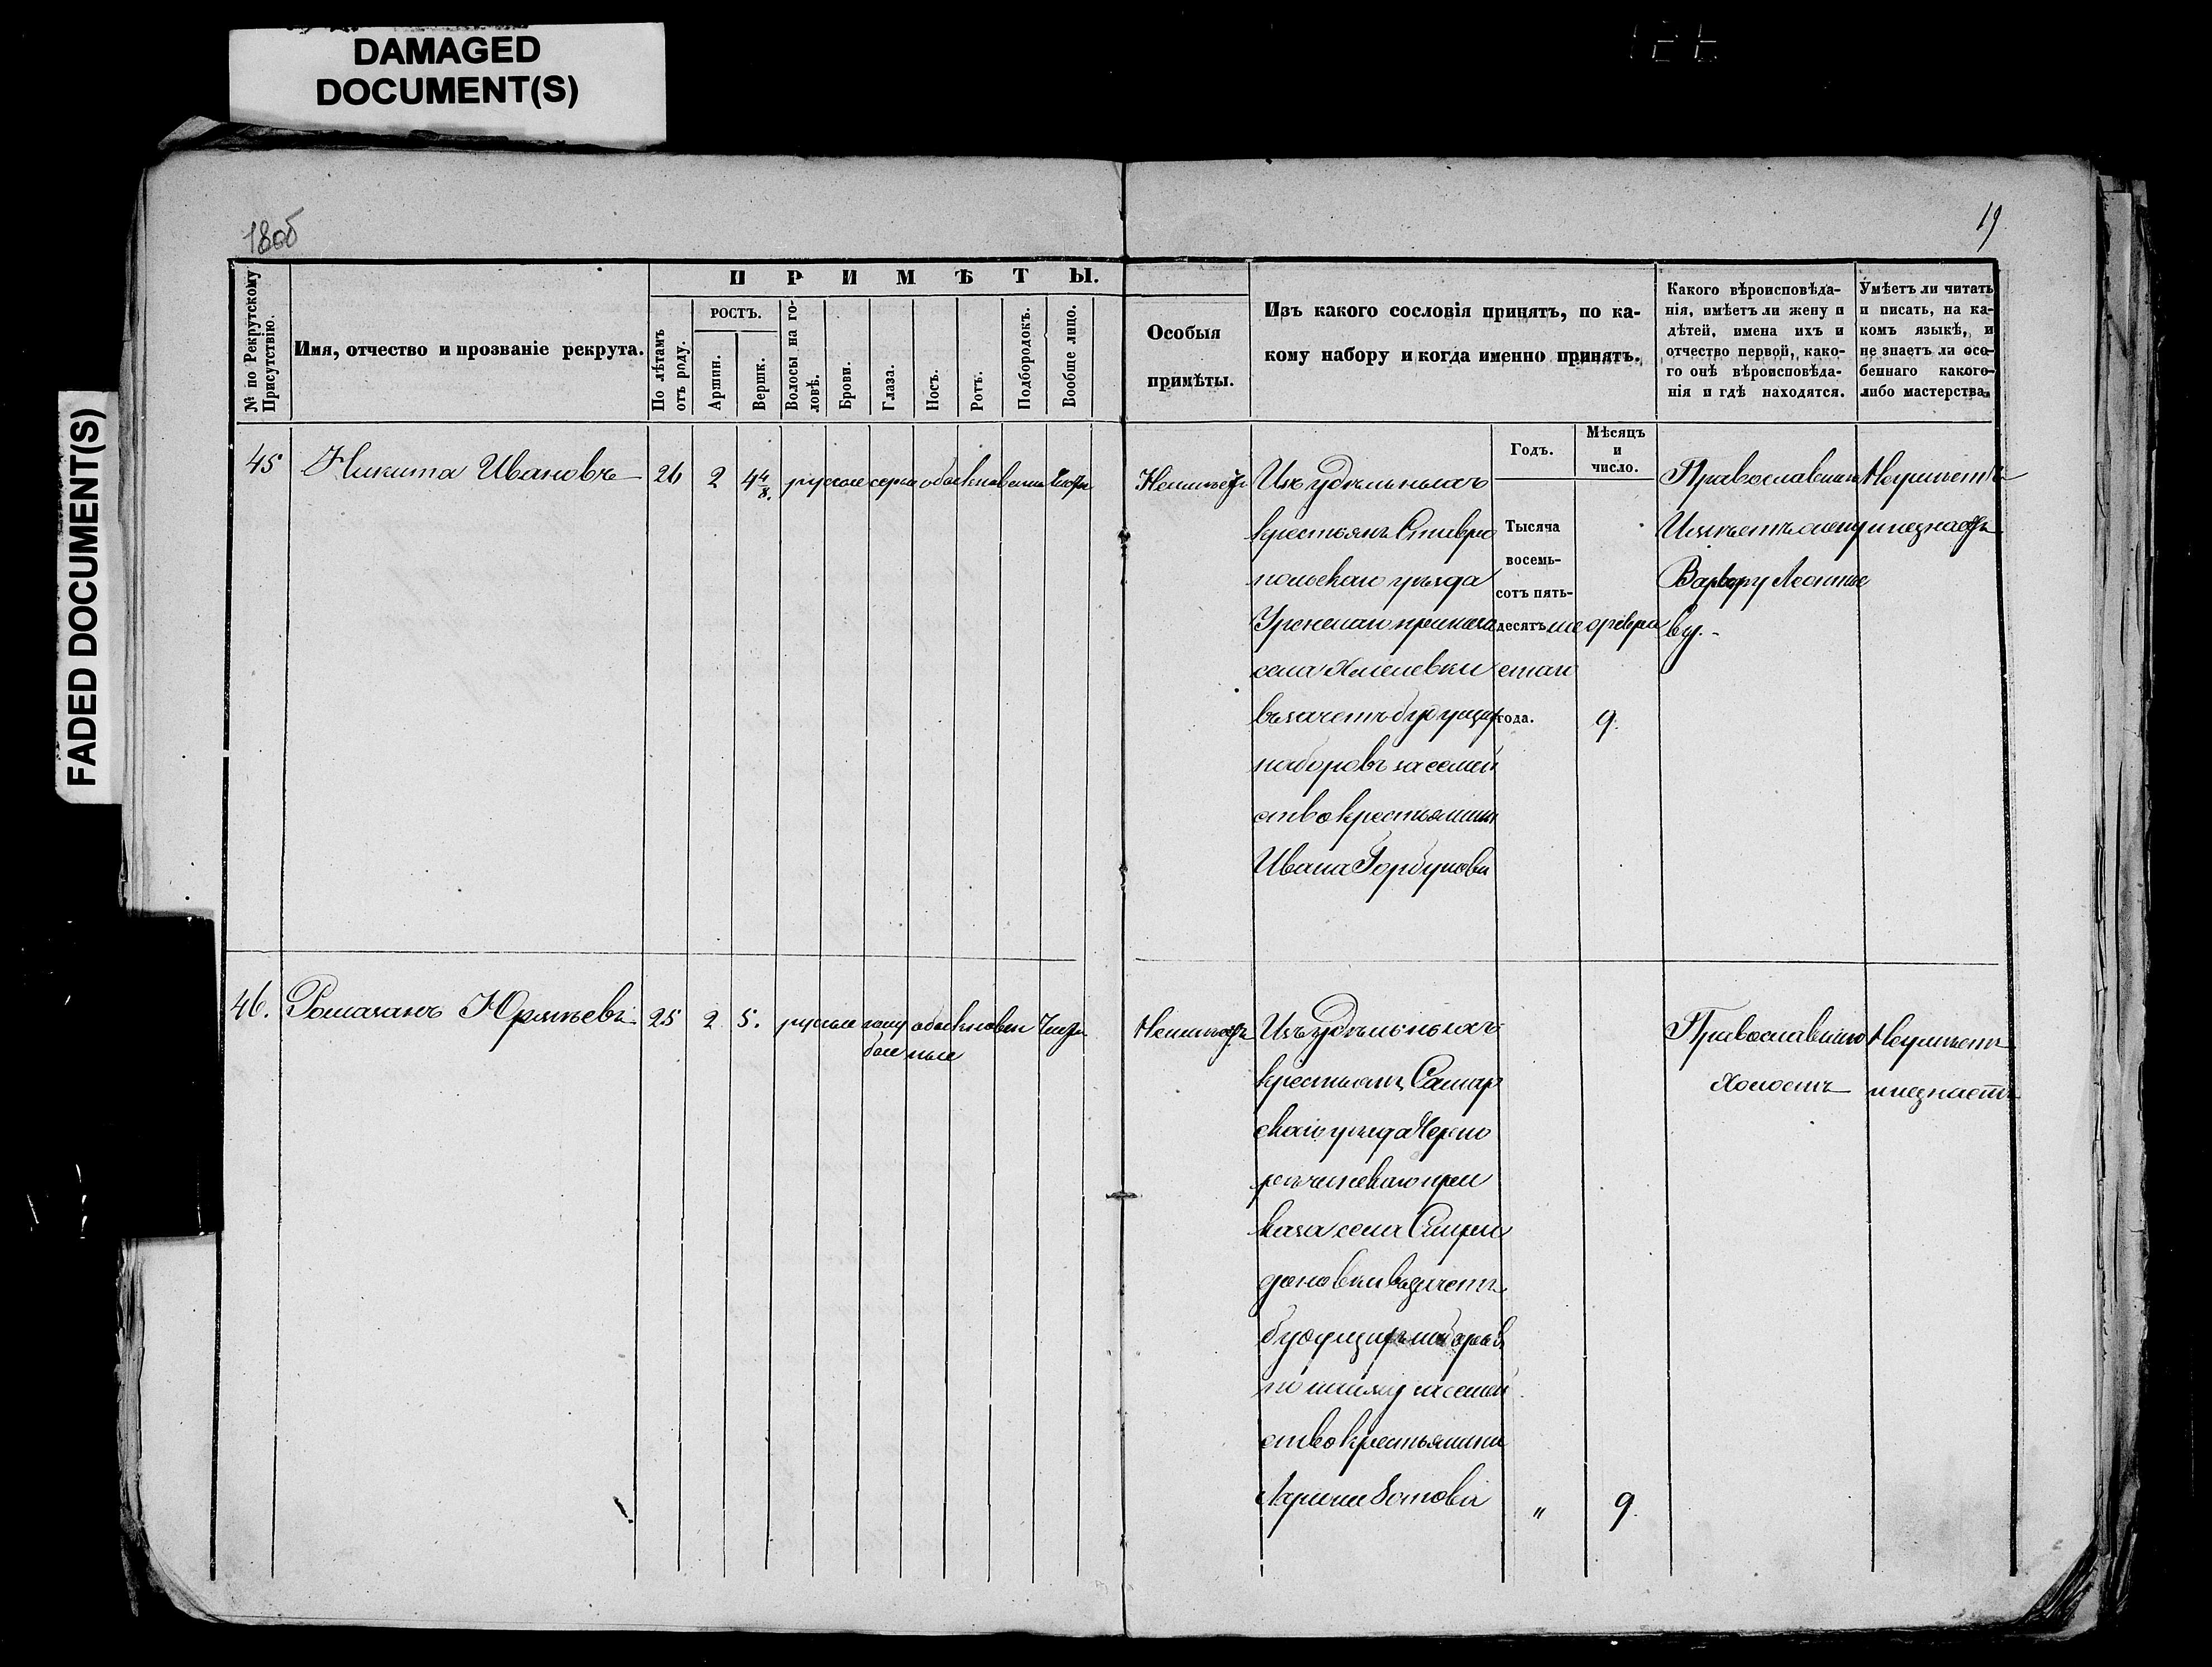 DAMAGED
DOCUMENT(S)
FADED DOCUMENT(S)
18об
19
№ по Рекрутскому
Присутствію.
Имя, отчество и прозваніе рекрута.
ПРИМѢТЫ.
По лѣтамъ
отъ роду.
РОСТЪ.
Аршин.
Вершк.
Волосы на го-
ловѣ.
Брови.
Глаза.
Носъ.
Ротъ.
Подбородокъ.
Вообще лицо.
Особыя
примѣты.
Изъ какого сословія принятъ, по ка-
кому набору и когда именно принятъ.
Годъ.
Мѣсяцъ
и
число.
Какого вѣроисповѣда-
нія, имѣетъ ли жену и
дѣтей, имена ихъ и
отчество первой, како-
го онѣ вѣроисповѣда-
нія и гдѣ находятся.
Умѣетъ ли читать
и писать, на ка-
комъ языкѣ, и
не знаетъ ли осо-
беннаго какого-
либо мастерства.
45
Никита Ивановъ
26
2
4 4/8.
русые серые обыкновенные чистое
Неимѣетъ
Изъ удѣльныхъ
крестьянъ Ставро
польскаго уѣзда
Уренскаго приказа
села Хмелевки
въ зачетъ будущихъ
наборовъ за семей
ство крестьянина
Ивана Горбунова
Тысяча
восемь-
сотъ пять-
десятъ ше
стаго
года.
февраля
9.
Православнаго
Имѣетъ жену
Варвару Леонтье
ву.-
Неумѣетъ
и незнаетъ
46.
Ромаханъ Юрмѣевъ
25
2
5.
русые голу обыкновен чистое
бые ные
Неимѣетъ
Изъ удѣльныхъ
крестьянъ Самар
скаго уѣзда Черно
рѣченскаго при
каза села Спири
доновки въ зачетъ
будущихъ наборовъ
за семей
ство крестьянина
"
9.
Православнаго
Холостъ
Неумѣетъ
и незнаетъ